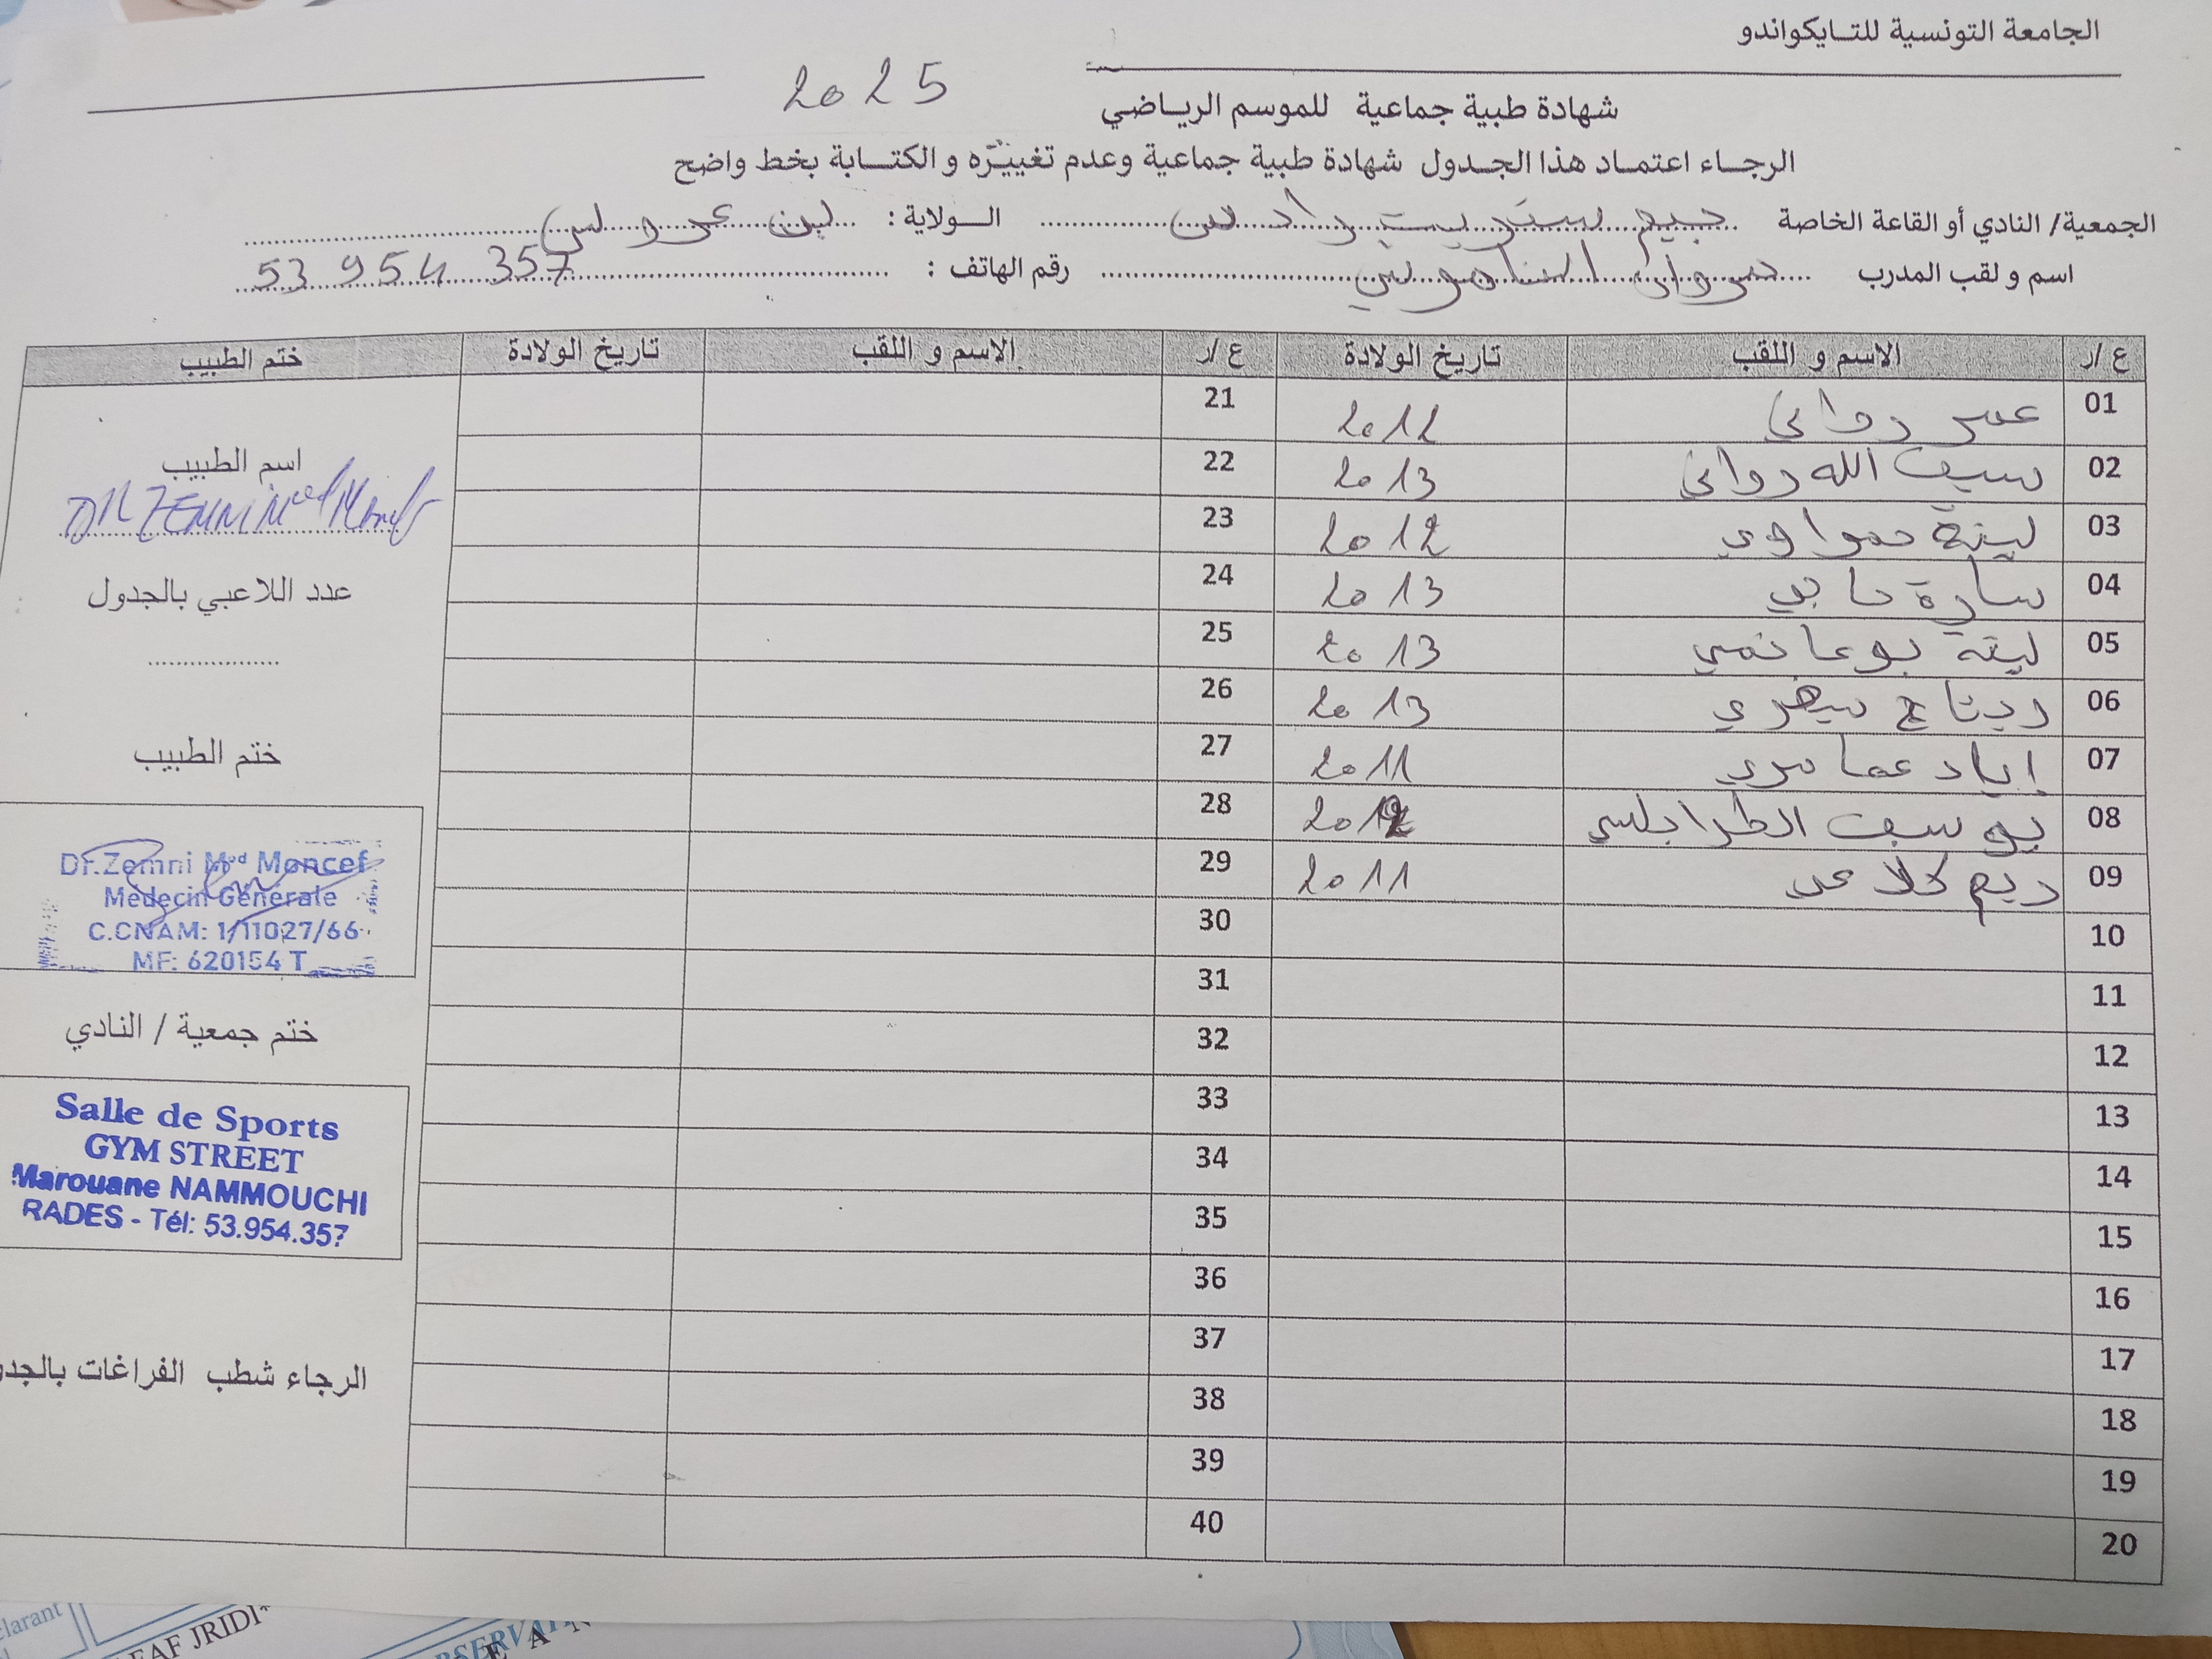 الجامعة التونسية للتايكواندو
شهادة طبية جماعية للموسم الرياضي 2025
الرجاء اعتماد هذا الجدول شهادة طبية جماعية وعدم تغييرّه و الكتابة بخط واضح
الجمعية/ النادي أو القاعة الخاصة جيم ستريت رادس الولاية : بن عروس
اسم و لقب المدرب مروان الناموشي رقم الهاتف : 53 954 357
ع/ر الاسم و اللقب تاريخ الولادة ع/ر الاسم و اللقب تاريخ الولادة ختم الطبيب
01 عمر رواني 2012 21
02 سيف الله رواني 2013 22
03 لينة حمراوي 2012 23
04 سارة 2013 24
05 لينة بوغانمي 2013 25
06 ريتاج 2013 26
07 إياد عمامري 2011 27
08 يوسف الطرابلسي 2012 28
09 ريم كلاعي 2011 29
10 30
11 31
12 32
13 33
14 34
15 35
16 36
17 37
18 38
19 39
20 40
اسم الطبيب
DR ZEMNI Med Moncef
عدد اللاعبي بالجدول
ختم الطبيب
Dr.Zemni Med Moncef
Médecin Générale
C.CNAM: 1/11027/66
MF: 620154 T
ختم جمعية / النادي
Salle de Sports
GYM STREET
Marouane NAMMOUCHI
RADES - Tél: 53.954.357
الرجاء شطب الفراغات بالجدو
clarant
EAF JRIDI